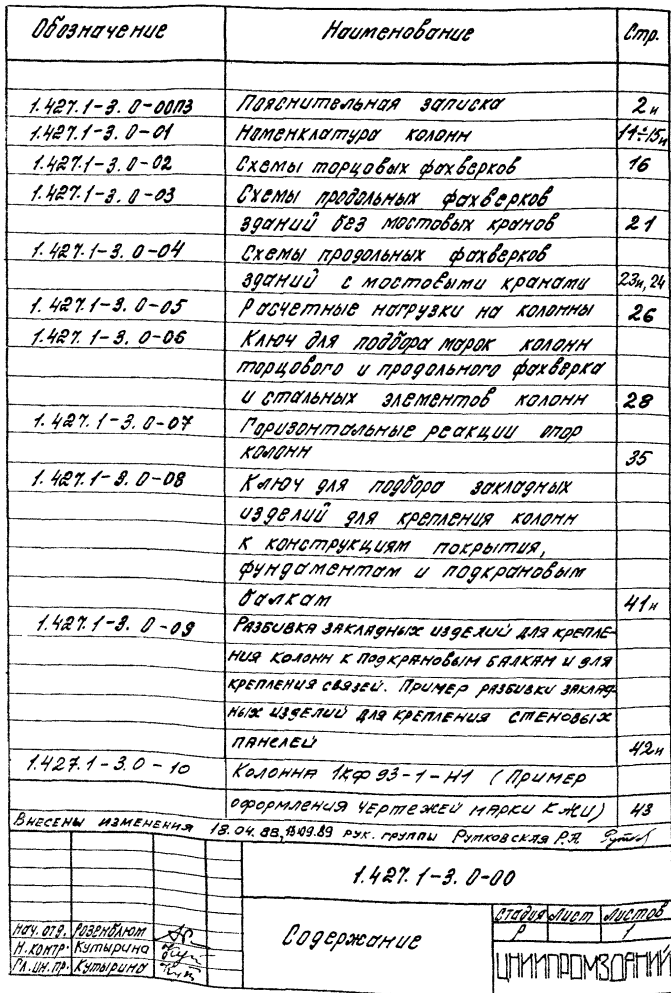 Обозначение Наименование Стр.
1.427.1-3.0-00ПЗ Пояснительная записка 2и
1.427.1-3.0-01 Номенклатура колонн 11÷15и
1.427.1-3.0-02 Схемы торцовых фахверков 16
1.427.1-3.0-03 Схемы продольных фахверков
зданий без мостовых кранов 21
1.427.1-3.0-04 Схемы продольных фахверков
зданий с мостовыми кранами 23и, 24
1.427.1-3.0-05 Расчетные нагрузки на колонны 26
1.427.1-3.0-06 Ключ для подбора марок колонн
торцового и продольного фахверка
и стальных элементов колонн 28
1.427.1-3.0-07 Горизонтальные реакции опор
колонн 35
1.427.1-3.0-08 Ключ для подбора закладных
изделий для крепления колонн
к конструкциям покрытия,
фундаментам и подкрановым
балкам 41и
1.427.1-3.0-09 Разбивка закладных изделий для крепле-
ния колонн к подкрановым балкам и для
крепления связей. Пример разбивки заклад-
ных изделий для крепления стеновых
панелей 42и
1.427.1-3.0-10 Колонна 1КФ93-1-Н1 (Пример
оформления чертежей марки КЖИ) 43
Внесены изменения 18.04.88, 13.09.89 рук. группы Рутковская Р.Я.
1.427.1-3.0-00
Содержание
Стадия Лист Листов
Р 1
Нач. отд. Розенблюм
Н.контр. Кутырина
Гл.ин.пр. Кутырина
ЦНИИПРОМЗДАНИЙ